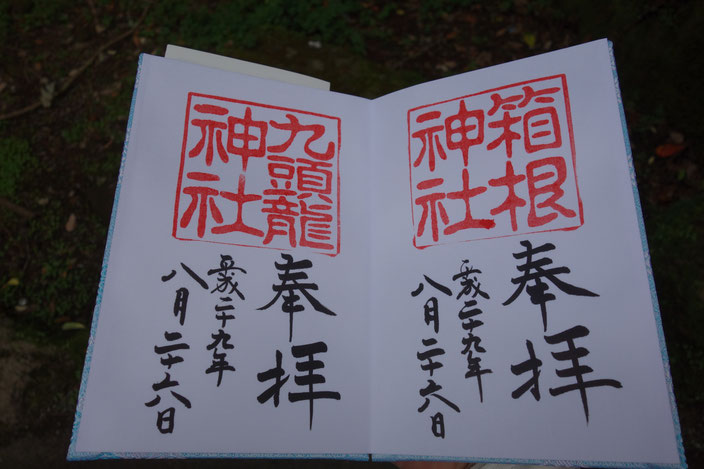 箱根
神社
奉拝
平成二十九年
八月二十六日
九頭龍
神社
奉拝
平成二十九年
八月二十六日